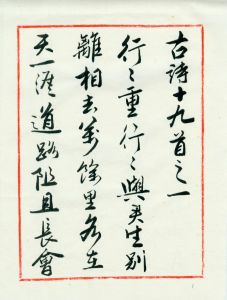 古詩十九首之一
行〻重行〻與君生別
離相去萬餘里各在
天一涯道路阻且長會